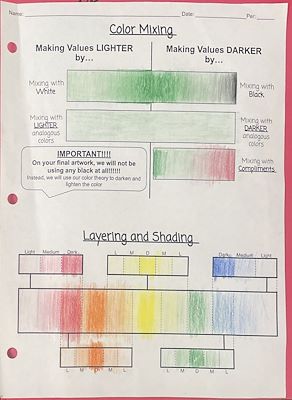 Name: Date: Per:
Color Mixing
Making Values LIGHTER
by...
Making Values DARKER
by...
Mixing with
White
Mixing with
Black
Mixing with
LIGHTER
analogous
colors
Mixing with
DARKER
analogous
colors
IMPORTANT!!!!
On your final artwork, we will not be
using any black at all!!!!!!
Instead, we will use our color theory to darken and
lighten the color
Mixing with
Compliments
Layering and Shading
Light Medium Dark
L M D M L
Dark Medium Light
L M D M L
L M D M L